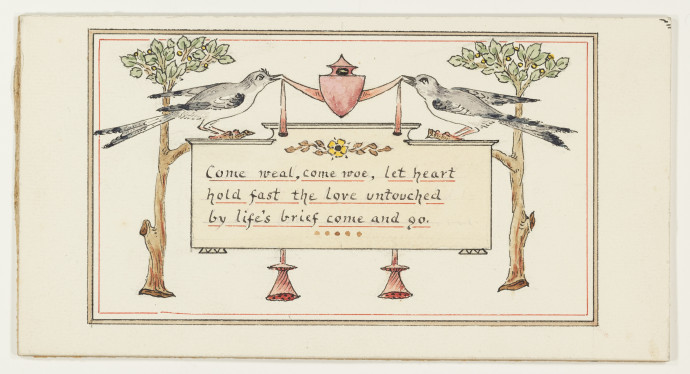 Come weal, come woe, let heart
hold fast the love untouched
by life's brief come and go.